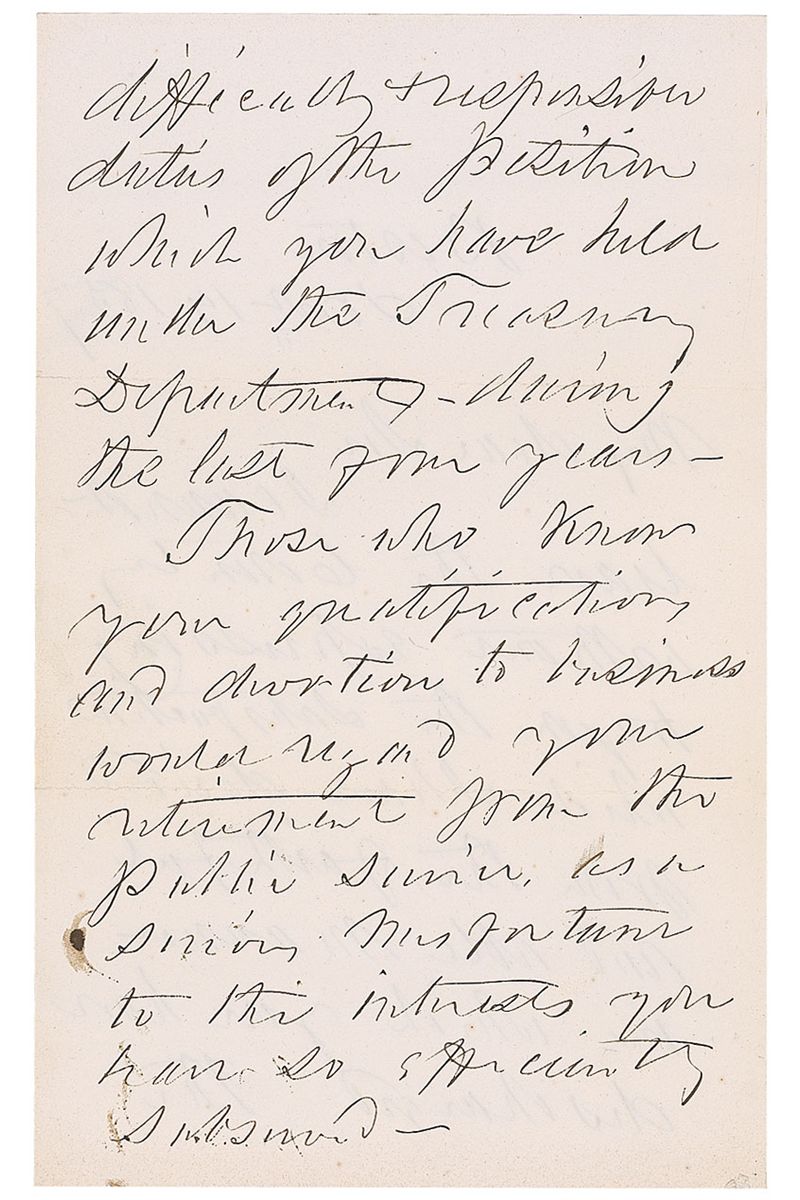 difficult & responsible
duties of the position
which you have held
under the Treasury
Department - during
the last four years -
Those who know
your qualifications
and devotion to business
would regard your
retirement from the
Public Service, as a
serious misfortune
to the interests you
have so efficiently
subserved -